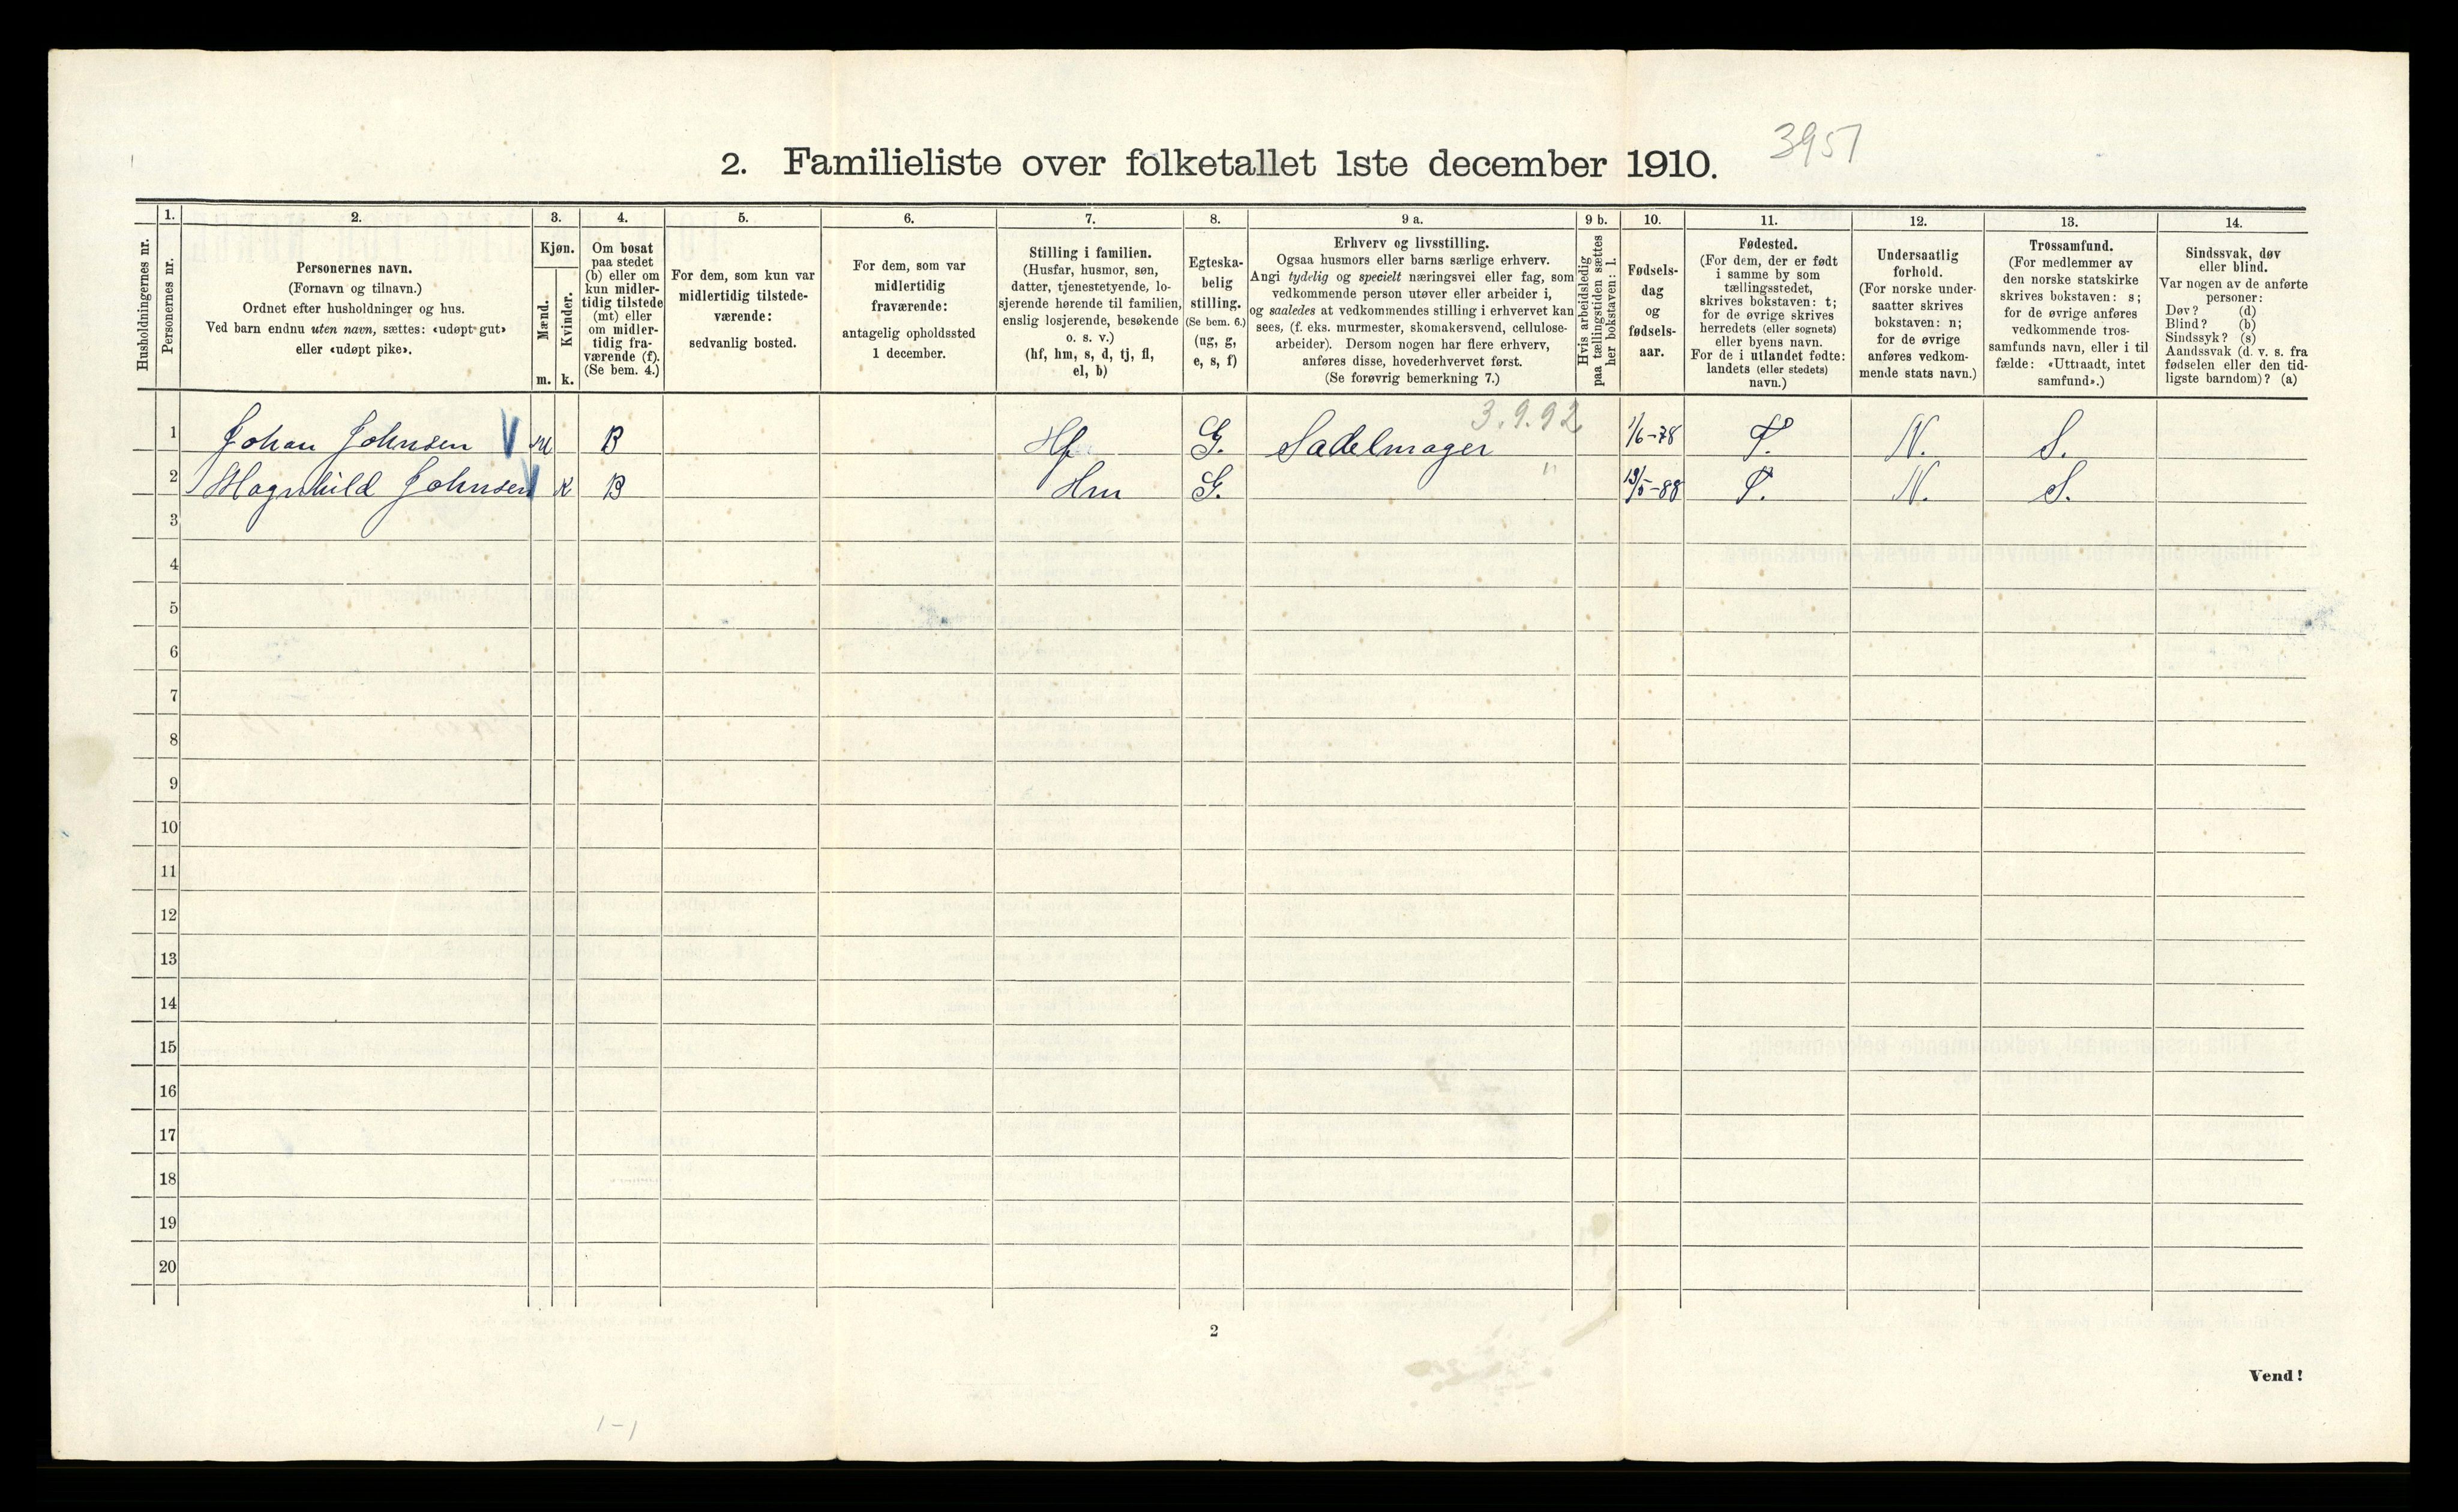 3951
2. Familieliste over folketallet 1ste december 1910.
Husholdningernes nr.
1.
Personernes nr.
2.
Personernes navn.
(Fornavn og tilnavn.)
Ordnet efter husholdninger og hus.
Ved barn endnu uten navn, sættes: «udøpt gut»
eller «udøpt pike».
3.
Kjøn.
Mænd.
Kvinder.
m. k.
4.
Om bosat
paa stedet
(b) eller om
kun midler-
tidig tilstede
(mt) eller
om midler-
tidig fra-
værende (f).
(Se bem. 4.)
5.
For dem, som kun var
midlertidig tilstede-
værende:
sedvanlig bosted.
6.
For dem, som var
midlertidig
fraværende:
antagelig opholdssted
1 december.
7.
Stilling i familien.
(Husfar, husmor, søn,
datter, tjenestetyende, lo-
sjerende hørende til familien,
enslig losjerende, besøkende
o. s. v.)
(hf, hm, s, d, tj, fl,
el, b)
8.
Egteska-
belig
stilling.
(Se bem. 6.)
(ug, g,
e, s, f)
9 a.
Erhverv og livsstilling.
Ogsaa husmors eller barns særlige erhverv.
Angi tydelig og specielt næringsvei eller fag, som
vedkommende person utøver eller arbeider i,
og saaledes at vedkommendes stilling i erhvervet kan
sees, (f. eks. murmester, skomakersvend, cellulose-
arbeider). Dersom nogen har flere erhverv,
anføres disse, hovederhvervet først.
(Se forøvrig bemerkning 7.)
9 b.
Hvis arbeidsledig
paa tællingstiden sættes
her bokstaven: l.
10.
Fødsels-
dag
og
fødsels-
aar.
11.
Fødested.
(For dem, der er født
i samme by som
tællingsstedet,
skrives bokstaven: t;
for de øvrige skrives
herredets (eller sognets)
eller byens navn.
For de i utlandet fødte:
landets (eller stedets)
navn.)
12.
Undersaatlig
forhold.
(For norske under-
saatter skrives
bokstaven: n;
for de øvrige
anføres vedkom-
mende stats navn.)
13.
Trossamfund.
(For medlemmer av
den norske statskirke
skrives bokstaven: s;
for de øvrige anføres
vedkommende tros-
samfunds navn, eller i til
fælde: «Uttraadt, intet
samfund».)
14.
Sindssvak, døv
eller blind.
Var nogen av de anførte
personer:
Døv? (d)
Blind? (b)
Sindssyk? (s)
Aandssvak (d. v. s. fra
fødselen eller den tid-
ligste barndom)? (a)
3.9.92
1 Johan Johnsen V M B Hf G. Sadelmager 1/6-78 T. N. S.
2 Magnhild Johnsen V K B Hm G. " 13/5-88 T. N. S.
3
4
5
6
7
8
9
10
11
12
13
14
15
16
17
18
19
20
2
Vend!
1-1